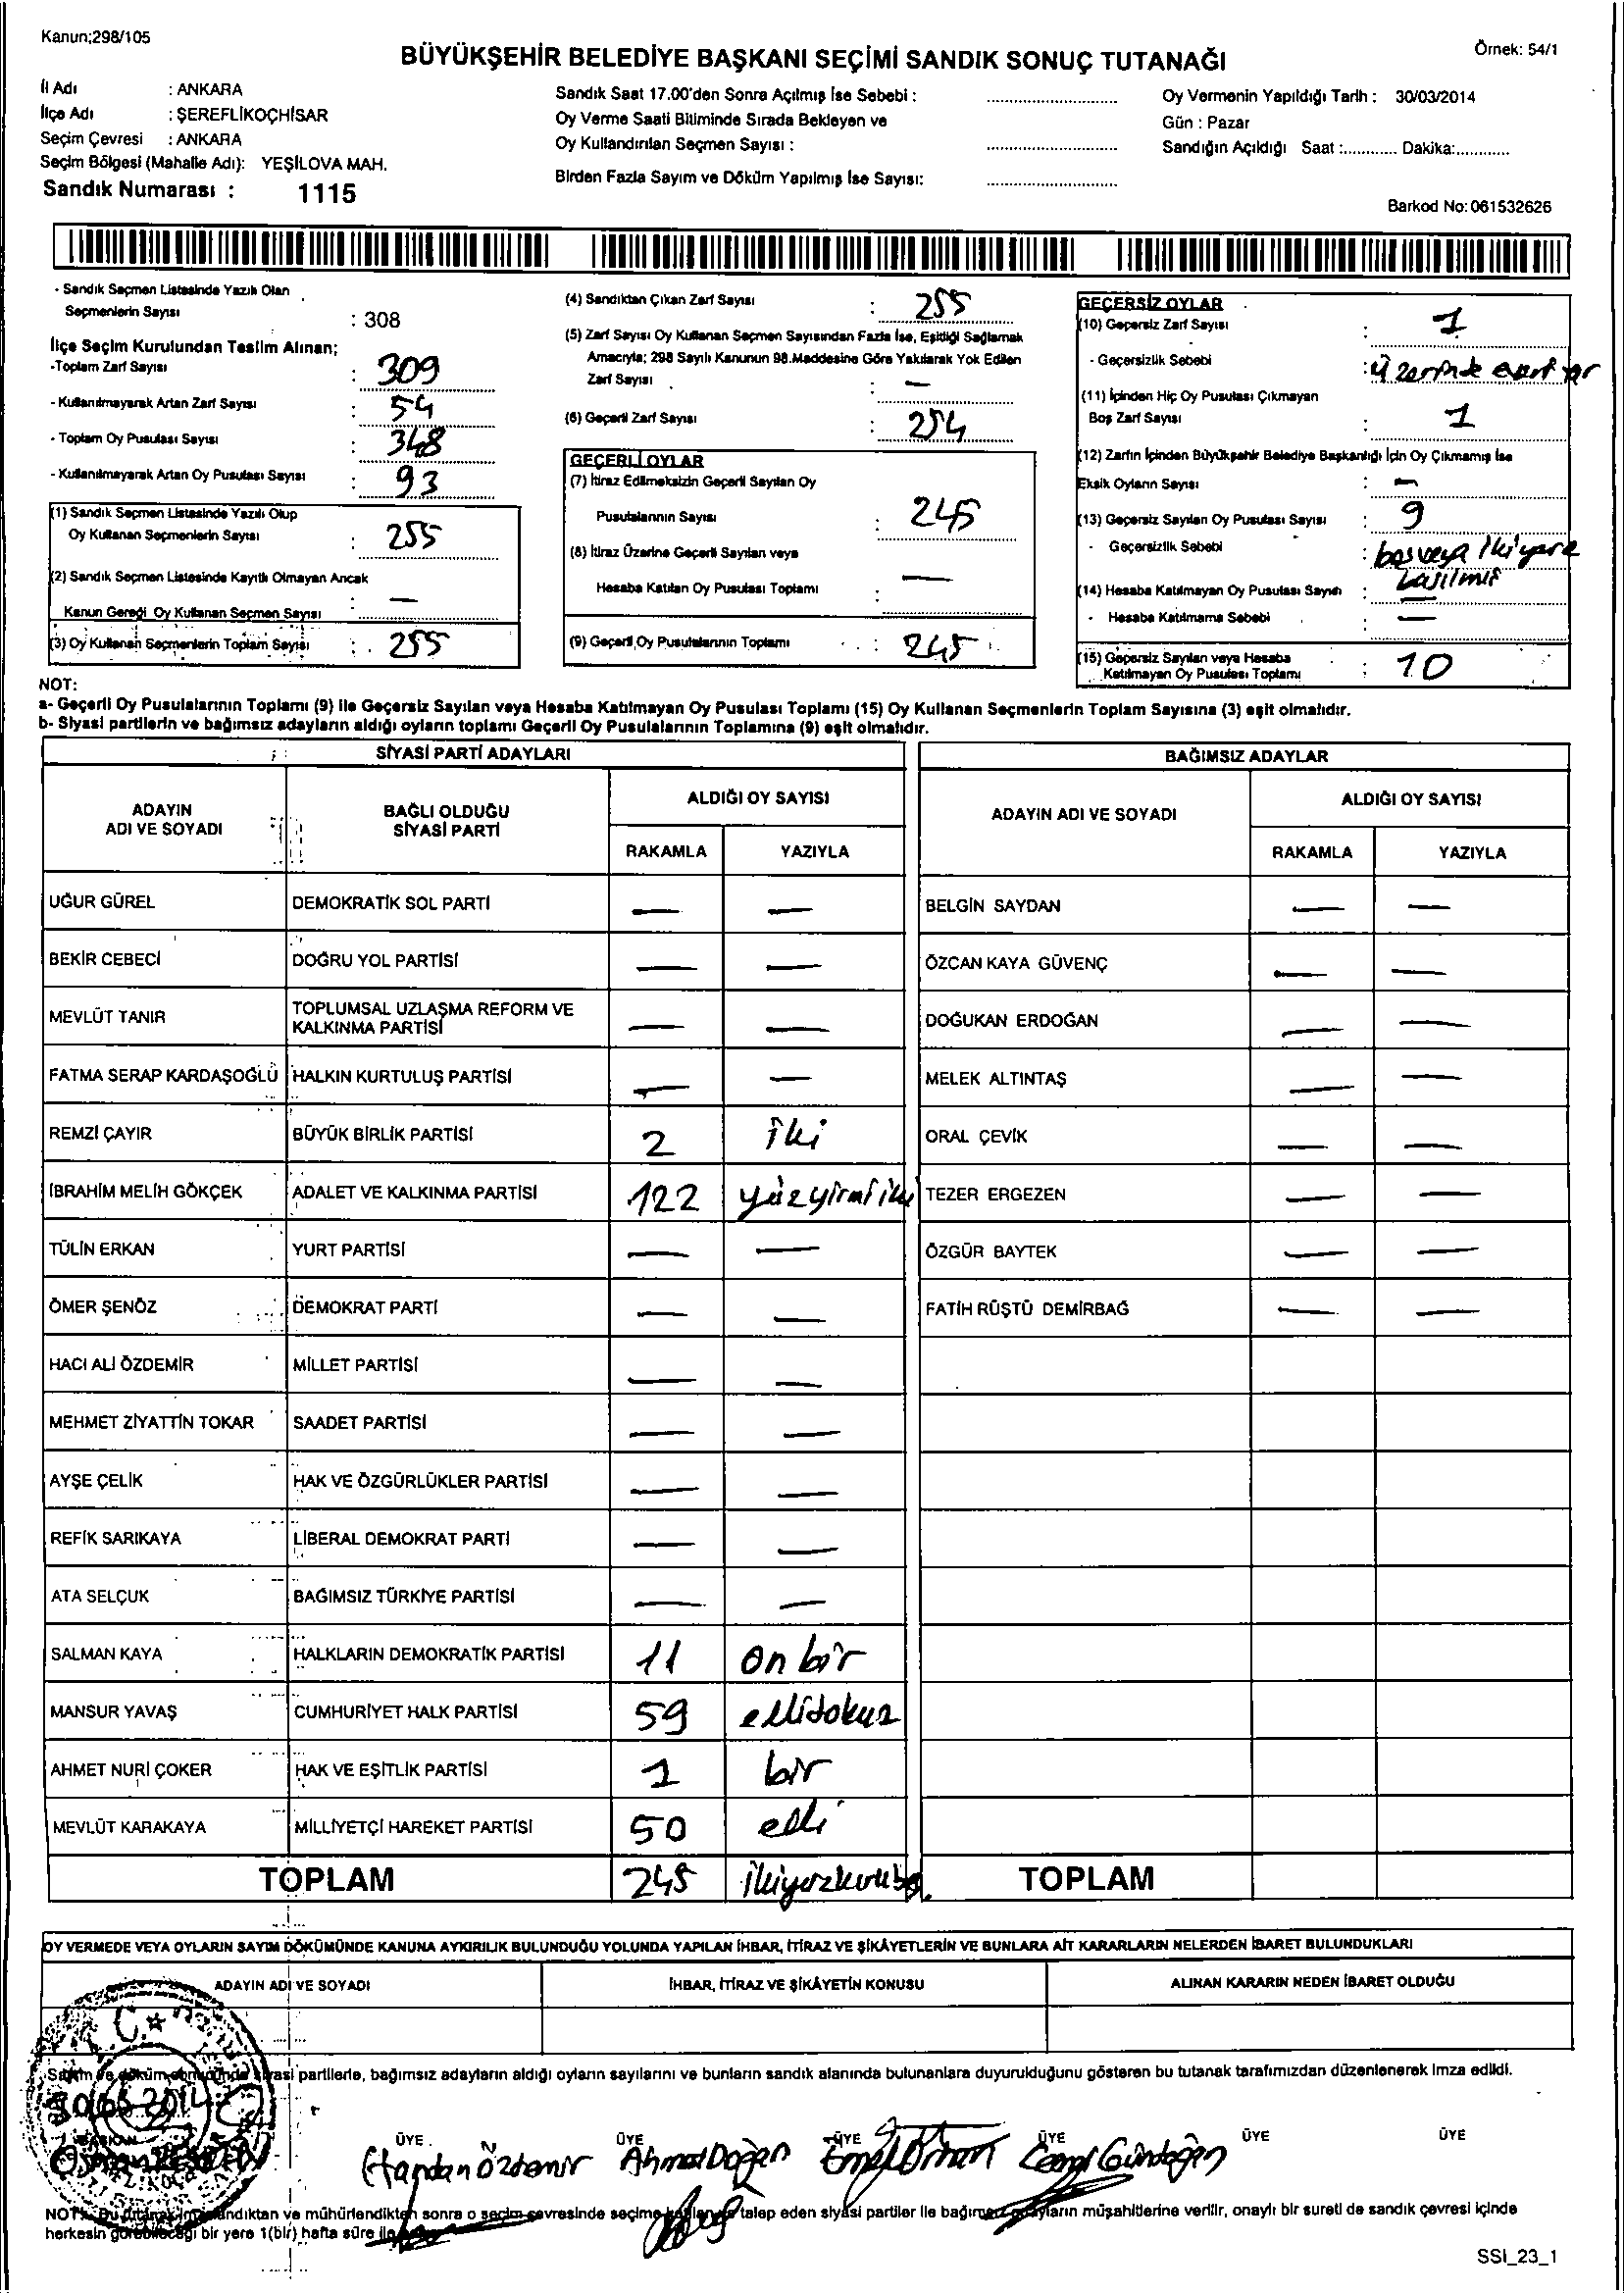 Kanun;298/105
Örnek: 54/1
BÜYÜKŞEHİR BELEDİYE BAŞKANI SEÇİMİ SANDIK SONUÇ TUTANAĞI
İl Adı : ANKARA
İlçe Adı : ŞEREFLİKOÇHİSAR
Seçim Çevresi : ANKARA
Seçim Bölgesi (Mahalle Adı): YEŞİLOVA MAH.
Sandık Numarası : 1115
Sandık Saat 17.00'den Sonra Açılmış İse Sebebi :
Oy Verme Saati Bitiminde Sırada Bekleyen ve
Oy Kullandırılan Seçmen Sayısı :
Birden Fazla Sayım ve Döküm Yapılmış İse Sayısı:
Oy Vermenin Yapıldığı Tarih : 30/03/2014
Gün : Pazar
Sandığın Açıldığı Saat :............ Dakika:...........
Barkod No: 061532626
- Sandık Seçmen Listesinde Yazılı Olan
Seçmenlerin Sayısı : 308
İlçe Seçim Kurulundan Teslim Alınan;
-Toplam Zarf Sayısı : 309
- Kullanılmayarak Artan Zarf Sayısı : 54
- Toplam Oy Pusulası Sayısı : 348
- Kullanılmayarak Artan Oy Pusulası Sayısı : 93
(1) Sandık Seçmen Listesinde Yazılı Olup
Oy Kullanan Seçmenlerin Sayısı : 255
(2) Sandık Seçmen Listesinde Kayıtlı Olmayan Ancak
Kanun Gereği Oy Kullanan Seçmen Sayısı : —
(3) Oy Kullanan Seçmenlerin Toplam Sayısı : 255
(4) Sandıktan Çıkan Zarf Sayısı : 255
(5) Zarf Sayısı Oy Kullanan Seçmen Sayısından Fazla İse, Eşitliği Sağlamak
Amacıyla; 298 Sayılı Kanunun 98.Maddesine Göre Yakılarak Yok Edilen
Zarf Sayısı : —
(6) Geçerli Zarf Sayısı : 254
GEÇERLİ OYLAR
(7) İtiraz Edilmeksizin Geçerli Sayılan Oy
Pusulalarının Sayısı : 245
(8) İtiraz Üzerine Geçerli Sayılan veya
Hesaba Katılan Oy Pusulası Toplamı : —
(9) Geçerli Oy Pusulalarının Toplamı : 245
GEÇERSİZ OYLAR
(10) Geçersiz Zarf Sayısı : 1
- Geçersizlik Sebebi : üzerinde
(11) İçinden Hiç Oy Pusulası Çıkmayan
Boş Zarf Sayısı : 1
(12) Zarfın İçinden Büyükşehir Belediye Başkanlığı İçin Oy Çıkmamış İse
Eksik Oyların Sayısı : —
(13) Geçersiz Sayılan Oy Pusulası Sayısı : 9
- Geçersizlik Sebebi : boş veya iki yere
basılmış
(14) Hesaba Katılmayan Oy Pusulası Sayısı : —
- Hesaba Katılmama Sebebi : —
(15) Geçersiz Sayılan veya Hesaba
Katılmayan Oy Pusulası Toplamı : 10
NOT:
a- Geçerli Oy Pusulalarının Toplamı (9) ile Geçersiz Sayılan veya Hesaba Katılmayan Oy Pusulası Toplamı (15) Oy Kullanan Seçmenlerin Toplam Sayısına (3) eşit olmalıdır.
b- Siyasi partilerin ve bağımsız adayların aldığı oyların toplamı Geçerli Oy Pusulalarının Toplamına (9) eşit olmalıdır.
SİYASİ PARTİ ADAYLARI BAĞIMSIZ ADAYLAR
ADAYIN ADI VE SOYADI BAĞLI OLDUĞU SİYASİ PARTİ ALDIĞI OY SAYISI ADAYIN ADI VE SOYADI ALDIĞI OY SAYISI
RAKAMLA YAZIYLA RAKAMLA YAZIYLA
UĞUR GÜREL DEMOKRATİK SOL PARTİ — — BELGİN SAYDAN — —
BEKİR CEBECİ DOĞRU YOL PARTİSİ — — ÖZCAN KAYA GÜVENÇ — —
MEVLÜT TANIR TOPLUMSAL UZLAŞMA REFORM VE KALKINMA PARTİSİ — — DOĞUKAN ERDOĞAN — —
FATMA SERAP KARDAŞOĞLU HALKIN KURTULUŞ PARTİSİ — — MELEK ALTINTAŞ — —
REMZİ ÇAYIR BÜYÜK BİRLİK PARTİSİ 2 iki ORAL ÇEVİK — —
İBRAHİM MELİH GÖKÇEK ADALET VE KALKINMA PARTİSİ 122 yüzyirmi iki TEZER ERGEZEN — —
TÜLİN ERKAN YURT PARTİSİ — — ÖZGÜR BAYTEK — —
ÖMER ŞENÖZ DEMOKRAT PARTİ — — FATİH RÜŞTÜ DEMİRBAĞ — —
HACI ALİ ÖZDEMİR MİLLET PARTİSİ — —
MEHMET ZİYATTİN TOKAR SAADET PARTİSİ — —
AYŞE ÇELİK HAK VE ÖZGÜRLÜKLER PARTİSİ — —
REFİK SARIKAYA LİBERAL DEMOKRAT PARTİ — —
ATA SELÇUK BAĞIMSIZ TÜRKİYE PARTİSİ — —
SALMAN KAYA HALKLARIN DEMOKRATİK PARTİSİ 11 on bir
MANSUR YAVAŞ CUMHURİYET HALK PARTİSİ 59 ellidokuz
AHMET NURİ ÇOKER HAK VE EŞİTLİK PARTİSİ 1 bir
MEVLÜT KARAKAYA MİLLİYETÇİ HAREKET PARTİSİ 50 elli
TOPLAM 245 TOPLAM
OY VERMEDE VEYA OYLARIN SAYIM DÖKÜMÜNDE KANUNA AYKIRILIK BULUNDUĞU YOLUNDA YAPILAN İHBAR, İTİRAZ VE ŞİKÂYETLERİN VE BUNLARA AİT KARARLARIN NELERDEN İBARET BULUNDUKLARI
ADAYIN ADI VE SOYADI İHBAR, İTİRAZ VE ŞİKÂYETİN KONUSU ALINAN KARARIN NEDEN İBARET OLDUĞU
siyasi partilerle, bağımsız adayların aldığı oyların sayılarını ve bunların sandık alanında bulunanlara duyurulduğunu gösteren bu tutanak tarafımızdan düzenlenerek imza edildi.
30/03/2014
BAŞKAN ÜYE ÜYE ÜYE ÜYE ÜYE ÜYE
Osman Handan Özdemir Ahmet Doğan Cemal Gündoğan
NOT: Bu tutanak ve mühürlendikten sonra o seçim çevresinde seçime talep eden siyasi partiler ile bağımsız adayların müşahitlerine verilir, onaylı bir sureti de sandık çevresi içinde
herkesin görebileceği bir yere 1(bir) hafta süre ile
SSİ_23_1